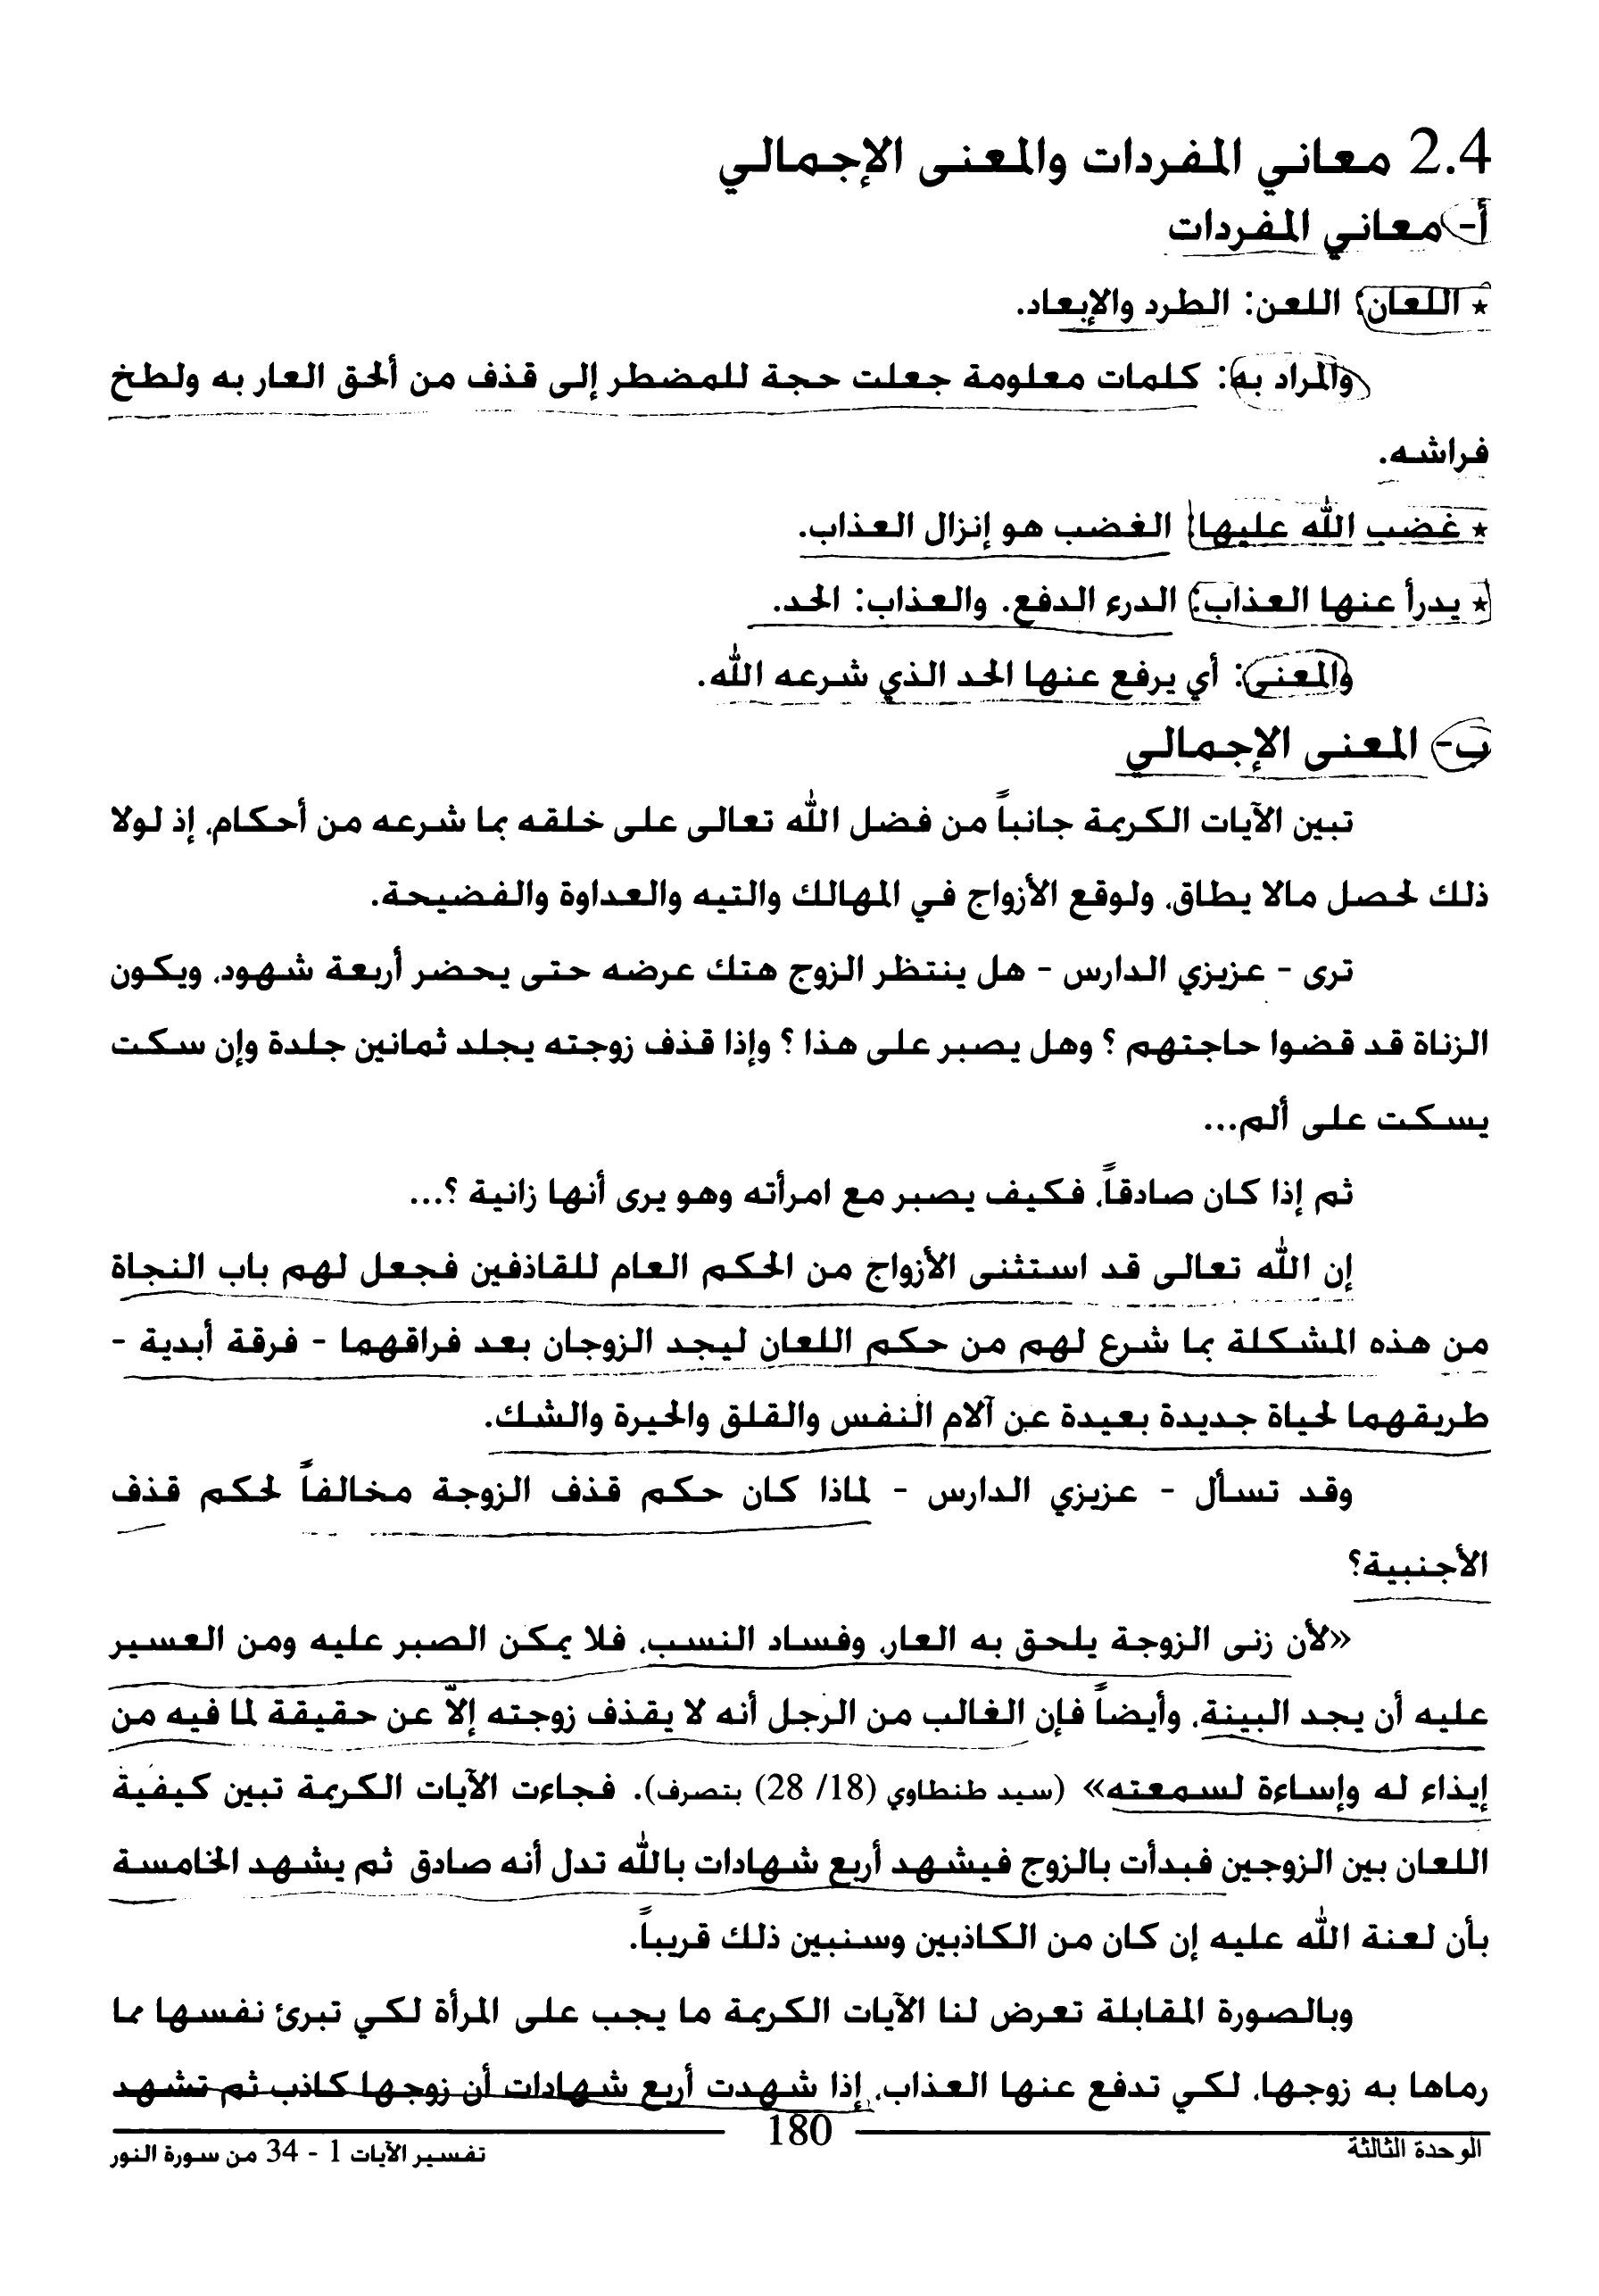 2.4 معاني المفردات والمعنى الإجمالي
أ- معاني المفردات
* اللعان: اللعن: الطرد والإبعاد.
والمراد به: كلمات معلومة جعلت حجة للمضطر إلى قذف من ألحق العار به ولطخ
فراشه.
* غضب الله عليها: الغضب هو إنزال العذاب.
* يدرأ عنها العذاب: الدرء الدفع. والعذاب: الحد.
والمعنى: أي يرفع عنها الحد الذي شرعه الله.
ب- المعنى الإجمالي
تبين الآيات الكريمة جانباً من فضل الله تعالى على خلقه بما شرعه من أحكام، إذ لولا
ذلك لحصل مالا يطاق، ولوقع الأزواج في المهالك والتيه والعداوة والفضيحة.
ترى - عزيزي الدارس - هل ينتظر الزوج هتك عرضه حتى يحضر أربعة شهود، ويكون
الزناة قد قضوا حاجتهم ؟ وهل يصبر على هذا ؟ وإذا قذف زوجته يجلد ثمانين جلدة وإن سكت
يسكت على ألم...
ثم إذا كان صادقاً، فكيف يصبر مع امرأته وهو يرى أنها زانية ؟...
إن الله تعالى قد استثنى الأزواج من الحكم العام للقاذفين فجعل لهم باب النجاة
من هذه المشكلة بما شرع لهم من حكم اللعان ليجد الزوجان بعد فراقهما - فرقة أبدية -
طريقهما لحياة جديدة بعيدة عن آلام النفس والقلق والحيرة والشك.
وقد تسأل - عزيزي الدارس - لماذا كان حكم قذف الزوجة مخالفاً لحكم قذف
الأجنبية؟
«لأن زنى الزوجة يلحق به العار، وفساد النسب، فلا يمكن الصبر عليه ومن العسير
عليه أن يجد البينة، وأيضاً فإن الغالب من الرجل أنه لا يقذف زوجته إلاّ عن حقيقة لما فيه من
إيذاء له وإساءة لسمعته» (سيد طنطاوي (18/ 28) بتصرف). فجاءت الآيات الكريمة تبين كيفية
اللعان بين الزوجين فبدأت بالزوج فيشهد أربع شهادات بالله تدل أنه صادق ثم يشهد الخامسة
بأن لعنة الله عليه إن كان من الكاذبين وسنبين ذلك قريباً.
وبالصورة المقابلة تعرض لنا الآيات الكريمة ما يجب على المرأة لكي تبرئ نفسها مما
رماها به زوجها، لكي تدفع عنها العذاب، إذا شهدت أربع شهادات أن زوجها كاذب ثم تشهد
الوحدة الثالثة
180
تفسير الآيات 1 - 34 من سورة النور